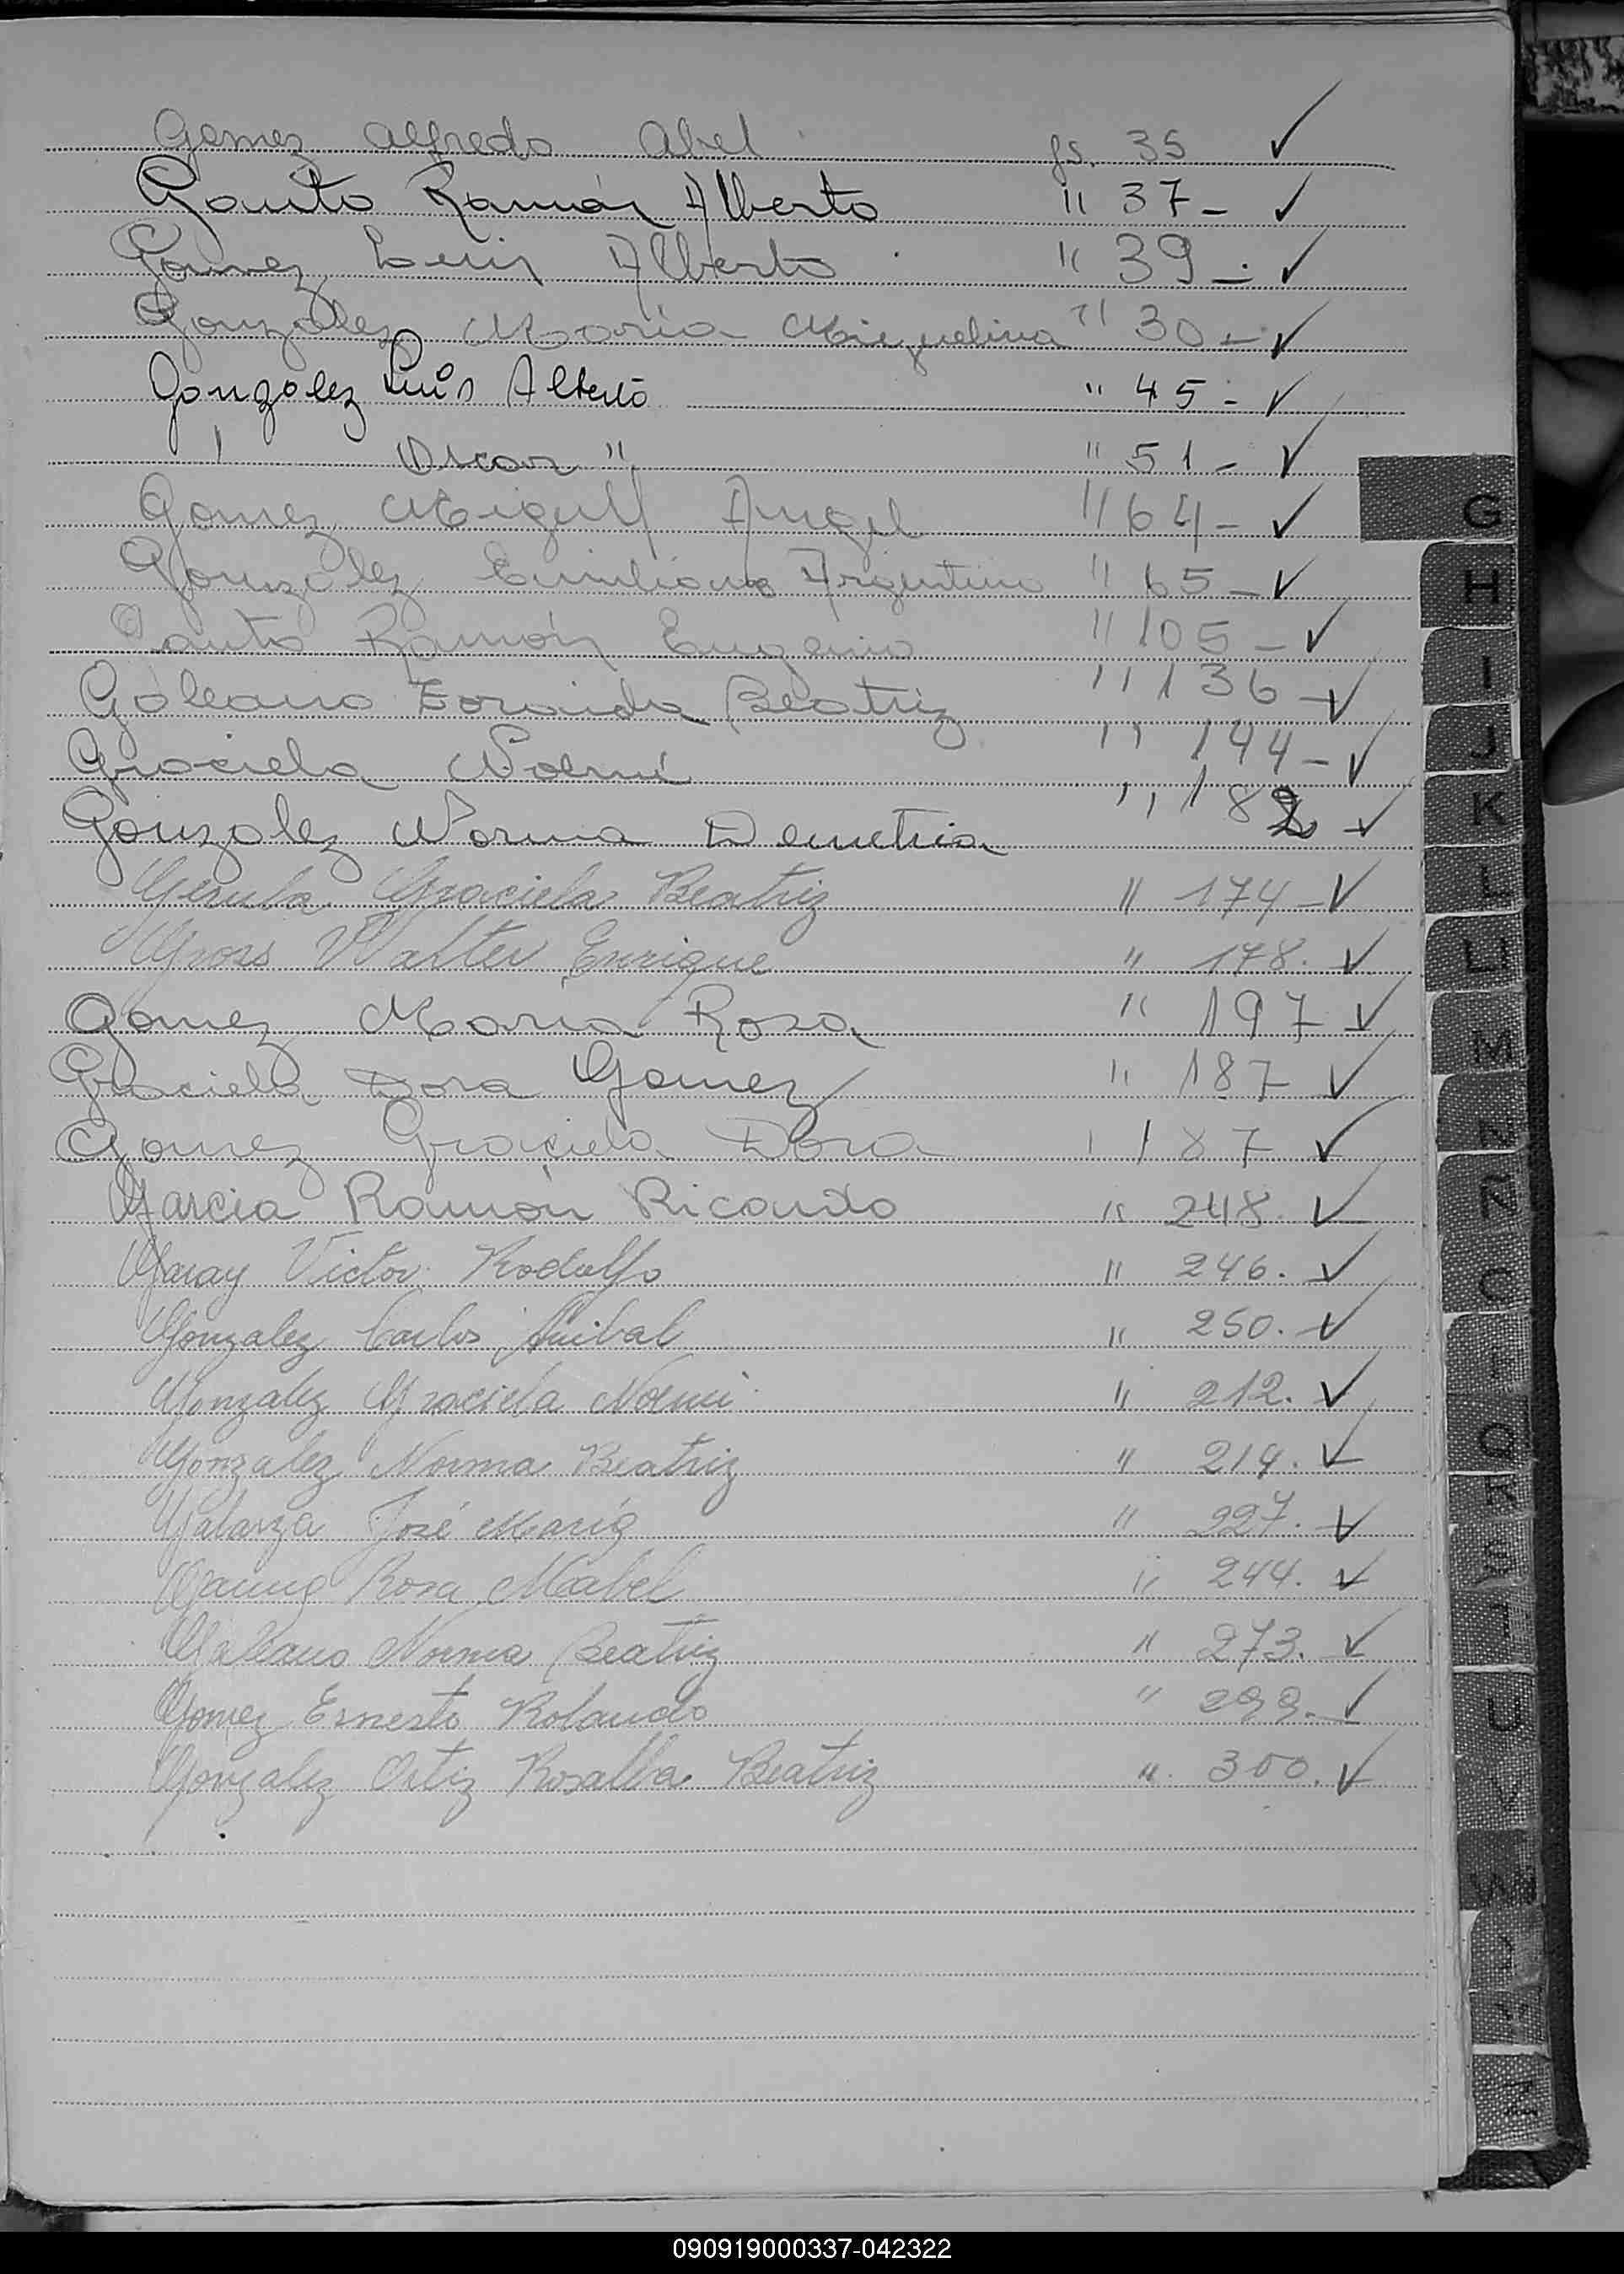 Gomez Alfredo Abel fs. 35 ✓
Gauto Ramón Alberto " 37- ✓
Gomez Luis Alberto " 39-. ✓
Gonzalez Maria Miguelina " 30- ✓
Gonzalez Luis Alberto " 45- ✓
" Oscar " " 51- ✓
Gomez Miguel Angel " 64- ✓
Gonzalez Emiliano Argentino " 65- ✓
Gauto Ramón Eugenio " 105- ✓
Galeano Zoraida Beatriz " 136- ✓
Graciela Noemi " 144- ✓
Gonzalez Norma Demetria " 182 ✓
Graciela Beatriz " 174- ✓
Gross Walter Enrique " 178. ✓
Gomez Maria Rosa " 197 ✓
Graciela Dora Gomez " 187 ✓
Gomez Graciela Dora 187 ✓
Garcia Ramón Ricardo " 248. ✓
Garay Victor Rodolfo " 246. ✓
Gonzalez Carlos Anibal " 250. ✓
Gonzalez Graciela Noemi " 212. ✓
Gonzalez Norma Beatriz " 214. ✓
Galarza José Maria " 227. ✓
Rosa Mabel " 244. ✓
Galeano Norma Beatriz " 273. ✓
Gomez Ernesto Rolando " 299. ✓
Gonzalez Ortiz Rosalba Beatriz " 300. ✓
G
H
I
J
K
L
LL
M
N
Ñ
O
Q
R
S
T
U
V
W
Z
090919000337-042322